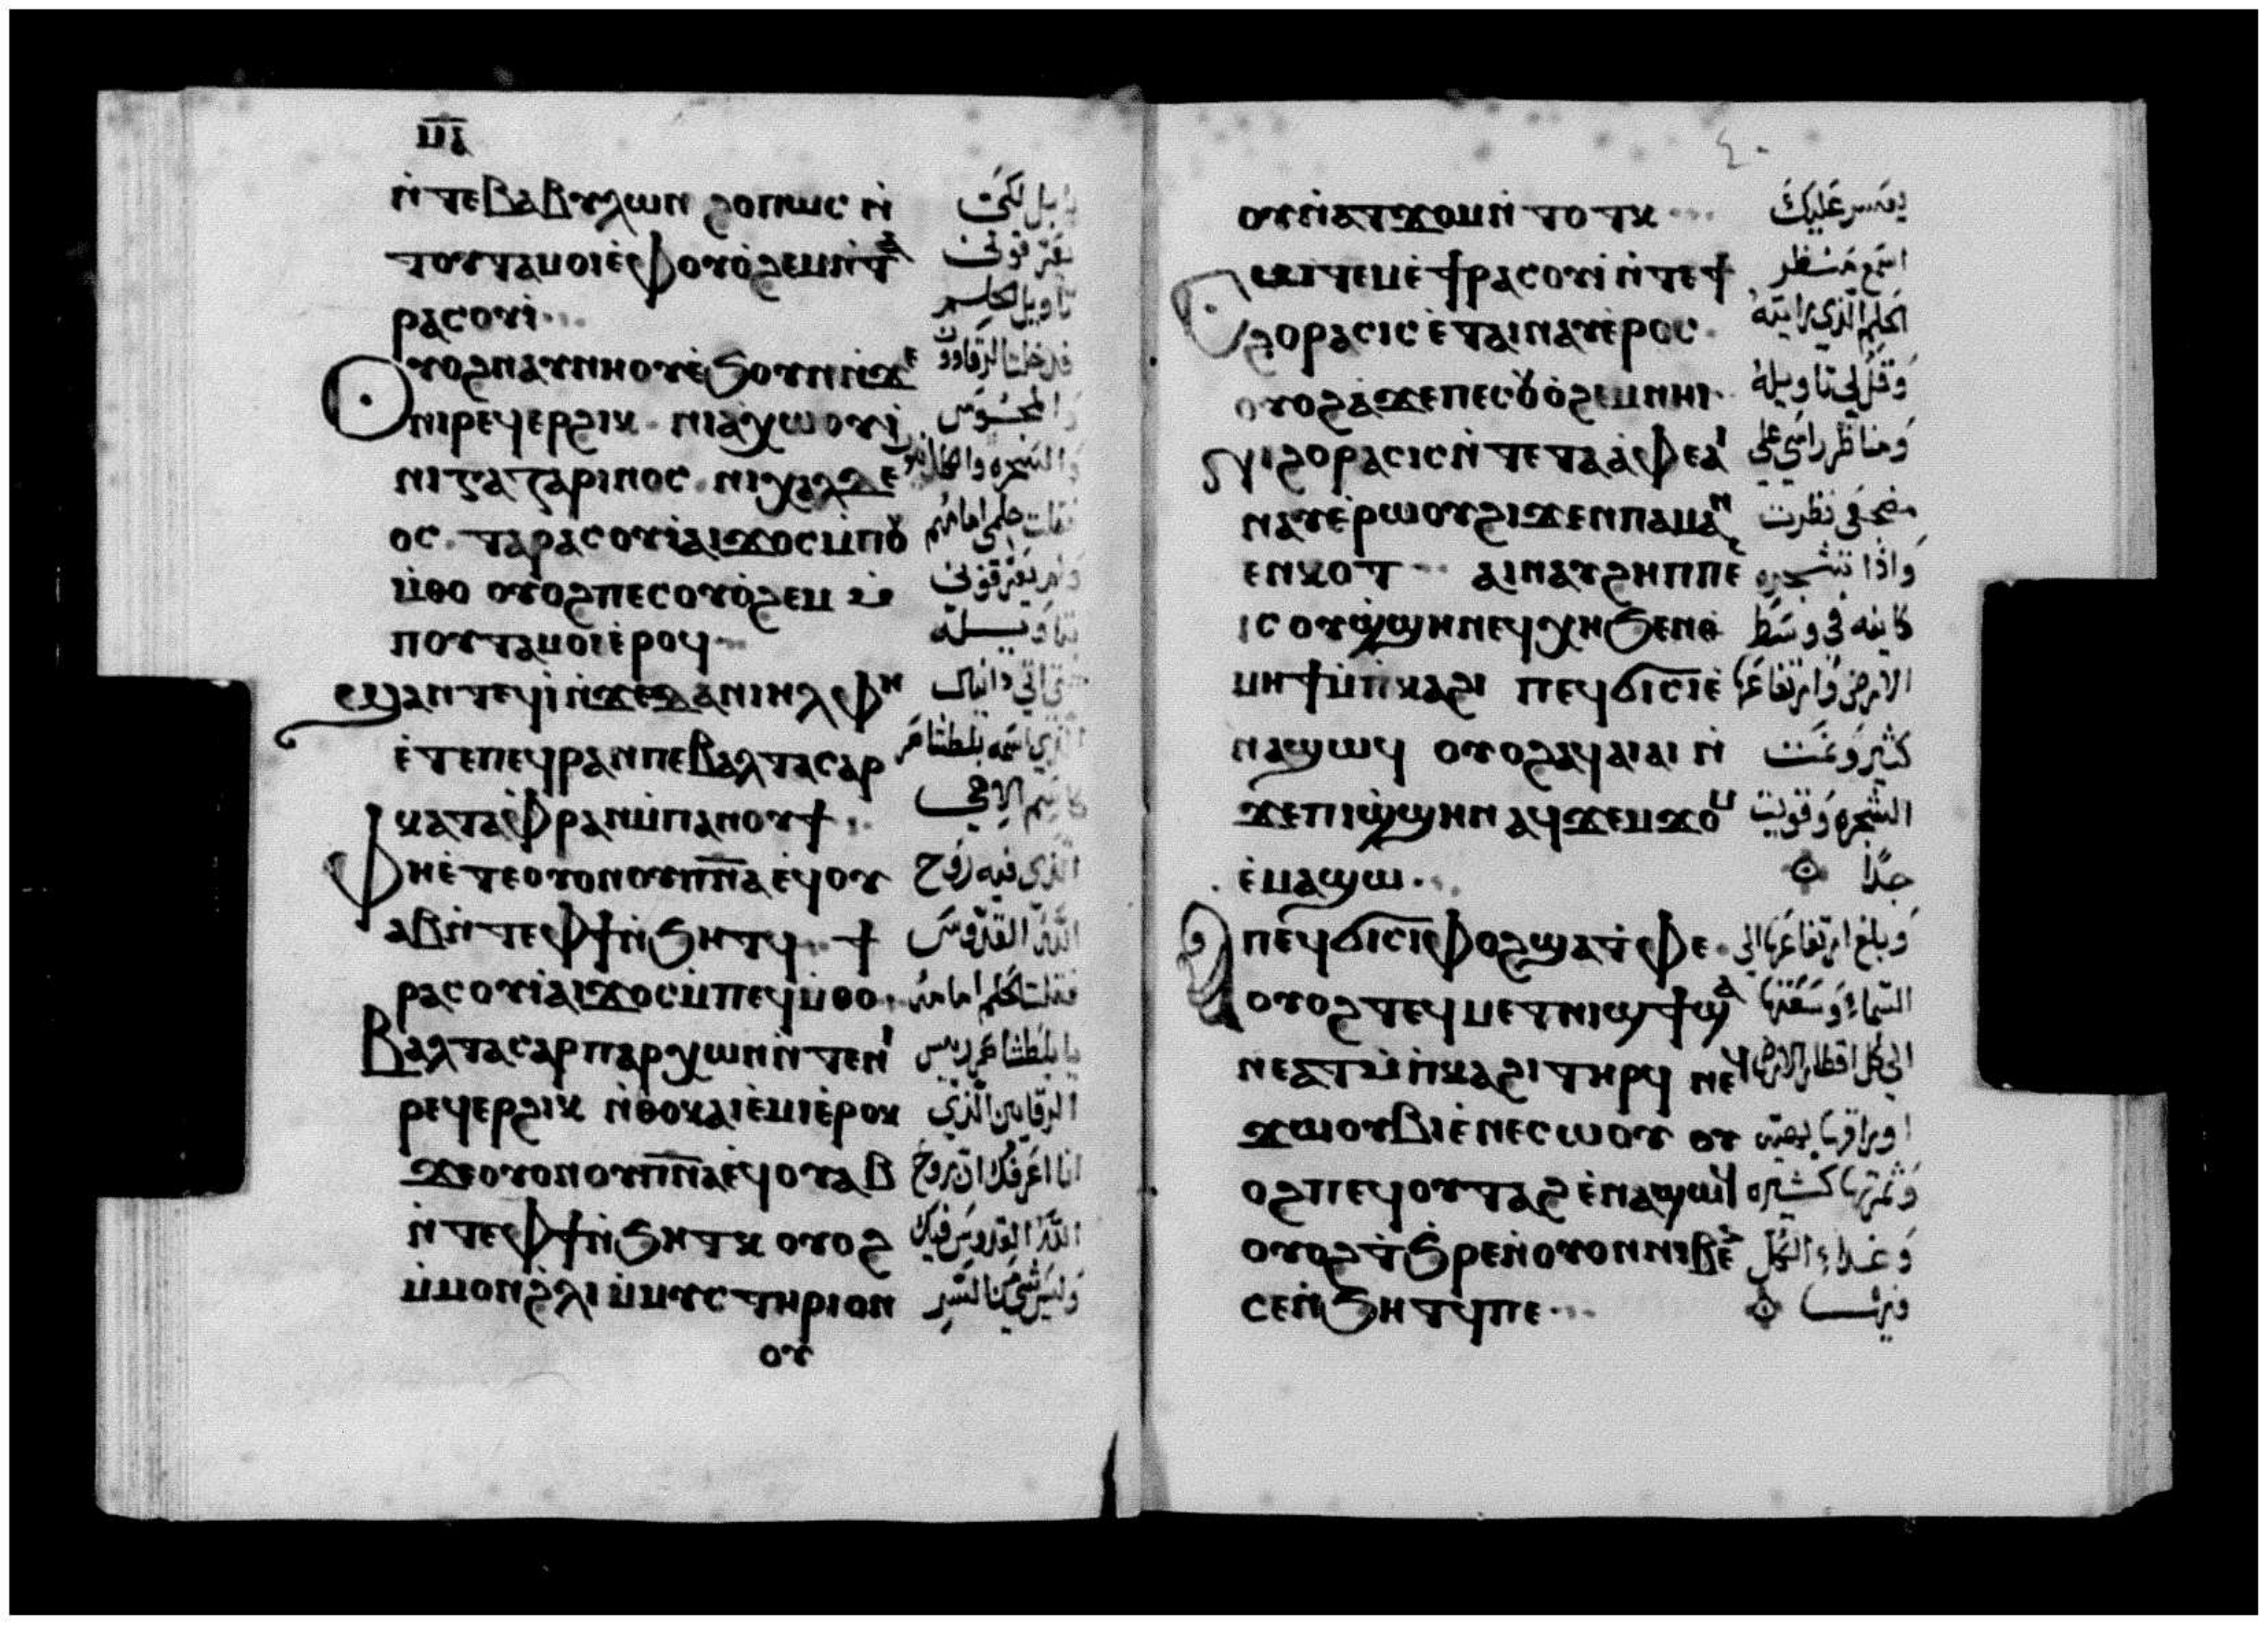 ⲙ̅ⲁ̅
ⲛ̇ⲧⲉⲃⲁⲃⲩⲗⲱⲛ ϩⲟⲡⲱⲥ ⲛ̇
ⲧⲟⲩⲧⲁⲙⲟⲓⲉ̇ⲫⲟⲩⲟ̇ϩⲉⲙⲛ̇ϯ
ⲣⲁⲥⲟⲩⲓ̇
ⲟⲩⲟϩⲛⲁⲩⲛⲏⲟⲩⲉ̇ϧⲟⲩⲛⲛ̇ϫⲉ
ⲛⲓⲣⲉϥⲉⲣϩⲓⲕ ⲛⲓⲁ̇ⲭⲱⲟⲩⲓ̇
ⲛⲓⲅⲁⲍⲁⲣⲓⲛⲟⲥ ⲛⲓⲭⲁⲗⲇⲉ
ⲟⲥ ⲧⲁⲣⲁⲥⲟⲩⲓ̇ⲁⲓϫⲟⲥⲙ̇ⲡⲟⲩ
ⲙ̇ⲑⲟ ⲟⲩⲟϩⲡⲉⲥⲟⲩⲟ̇ϩⲉⲙ ⲙ̇
ⲡⲟⲩⲧⲁⲙⲟⲓⲉ̇ⲣⲟϥ
ϣⲁⲛⲧⲉϥⲓ̇ⲛ̇ϫⲉⲇⲁⲛⲓⲏⲗ ⲫⲏ
ⲉ̇ⲧⲉⲡⲉϥⲣⲁⲛⲡⲉⲃⲁⲗⲧⲁⲥⲁⲣ
ⲕⲁⲧⲁⲫⲣⲁⲛⲙ̇ⲡⲁⲛⲟⲩϯ
ⲫⲏⲉ̇ⲧⲉⲟⲩⲟⲛⲟⲩⲡ̅ⲛ̅ⲁ̅ⲉϥⲟⲩ
ⲁⲃⲛ̇ⲧⲉⲫϯⲛ̇ϧⲏⲧϥ ϯ
ⲣⲁⲥⲟⲩⲓ̇ⲁⲓϫⲟⲥⲙ̇ⲡⲉϥⲙ̇ⲑⲟ
ⲃⲁⲗⲧⲁⲥⲁⲣⲡⲁⲣⲭⲱⲛⲛ̇ⲧⲉⲛⲓ
ⲣⲉϥⲉⲣϩⲓⲕ ⲛ̇ⲑⲟⲕⲁⲓⲉ̇ⲙⲓⲉ̇ⲣⲟⲕ
ϫⲉⲟⲩⲟⲛⲟⲩⲡ̅ⲛ̅ⲁ̅ⲉϥⲟⲩⲁⲃ
ⲛ̇ⲧⲉⲫϯⲛ̇ϧⲏⲧⲕ ⲟⲩⲟϩ
ⲙ̇ⲙⲟⲛϩ̇ⲗⲓ ⲙ̇ⲙⲩⲥⲧⲏⲣⲓⲟⲛ
ⲟⲩ
بابل لكى
يعرفونى
تاويل الحلم
فدخلت الرقاوون
والمجوس
والسحره والكلدانيون
فقلت حلمى امامهم
ولم يعرفونى
بتاويله
حتى اتى دانيال
الذي اسمه بلطشاصر
كاسم الاهى
الذي فيه روح
الله القدوس
فقلت الحلم امامه
يا بلطشاصر ريس
الرقايين الذي
انا اعرفك ان روح
الله القدوس فيك
وليس شي من السر
٤٠
ⲟⲩⲛ̇ⲁⲧϫⲟⲙⲛ̇ⲧⲟⲧⲕ
ⲥⲱⲧⲉⲙⲉ̇ϯⲣⲁⲥⲟⲩⲓ̇ⲛ̇ⲧⲉϯ
ϩⲟⲣⲁⲥⲓⲥ ⲉ̇ⲧⲁⲓⲛⲁⲩⲉ̇ⲣⲟⲥ
ⲟⲩⲟϩⲁ̇ϫⲉⲡⲉⲥⲟⲩⲟ̇ϩⲉⲙⲛⲏⲓ
ϯϩⲟⲣⲁⲥⲓⲥⲛ̇ⲧⲉⲧⲁⲁ̇ⲫⲉⲁⲓ
ⲛⲁⲩⲉ̇ⲣⲱⲟⲩϩⲓϫⲉⲛⲡⲁⲙⲁⲛ̇
ⲉⲛⲕⲟⲧ ⲁⲓⲛⲁⲩϩⲏⲡⲡⲉ
ⲓⲥ ⲟⲩϣ̇ϣⲏⲛⲉϥⲭⲏϧⲉⲛⲑ
ⲙⲏϯⲙ̇ⲡ̇ⲕⲁϩⲓ ⲡⲉϥϭⲓⲥⲓⲉ̇
ⲛⲁϣⲱϥ ⲟⲩⲟϩⲁϥⲁⲓⲁⲓ ⲛ̇
ϫⲉⲡⲓϣ̇ϣⲏⲛ ⲁϥϫⲉⲙϫⲟⲙ
ⲉ̇ⲙⲁϣⲱ
ⲡⲉϥϭⲓⲥⲓⲫⲟϩϣⲁⲧ̇ⲫⲉ
ⲟⲩⲟϩⲧⲉϥⲙⲉⲧⲛⲓϣϯϣⲁ
ⲛⲉⲁⲧⲙ̇ⲡ̇ⲕⲁϩⲓⲧⲏⲣϥ ⲛⲉϥ
ϫⲱⲟⲩⲃⲓⲉ̇ⲛⲉⲥⲱⲟⲩ ⲟⲩ
ⲟϩⲡⲉϥⲟⲩⲧⲁϩ ⲉ̇ⲛⲁϣⲱϥ
ⲟⲩⲟϩⲧ̇ϧⲣⲉⲛ̇ⲟⲩⲟⲛⲛⲓⲃⲉⲛ
ⲥⲉⲛ̇ϧⲏⲧϥⲡⲉ
يعسر عليك
اسمع منظر
الحلم الذي رايته
وقل لي تاويله
ومناظر راسي على
مضجعي نظرت
واذا بشجره
كاينه في وسط
الارض وارتفاعها
كثير وعمت
الشجره وقويت
جدًا
وبلغ ارتفاعها الى
السماء وسعتها
الى كل اقطار الارض
اوراقها بهيه
وثمرتها كثيره
وغداء الكل
فيها